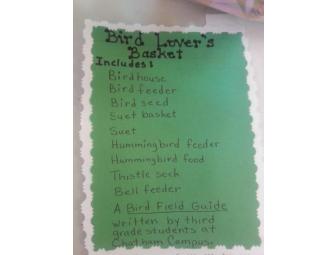 Bird Lover's
Basket
Includes:
Birdhouse
Bird feeder
Bird seed
Suet basket
Suet
Hummingbird feeder
Hummingbird food
Thistle sock
Bell feeder
A Bird Field Guide
written by third
grade students at
Chatham Campus.